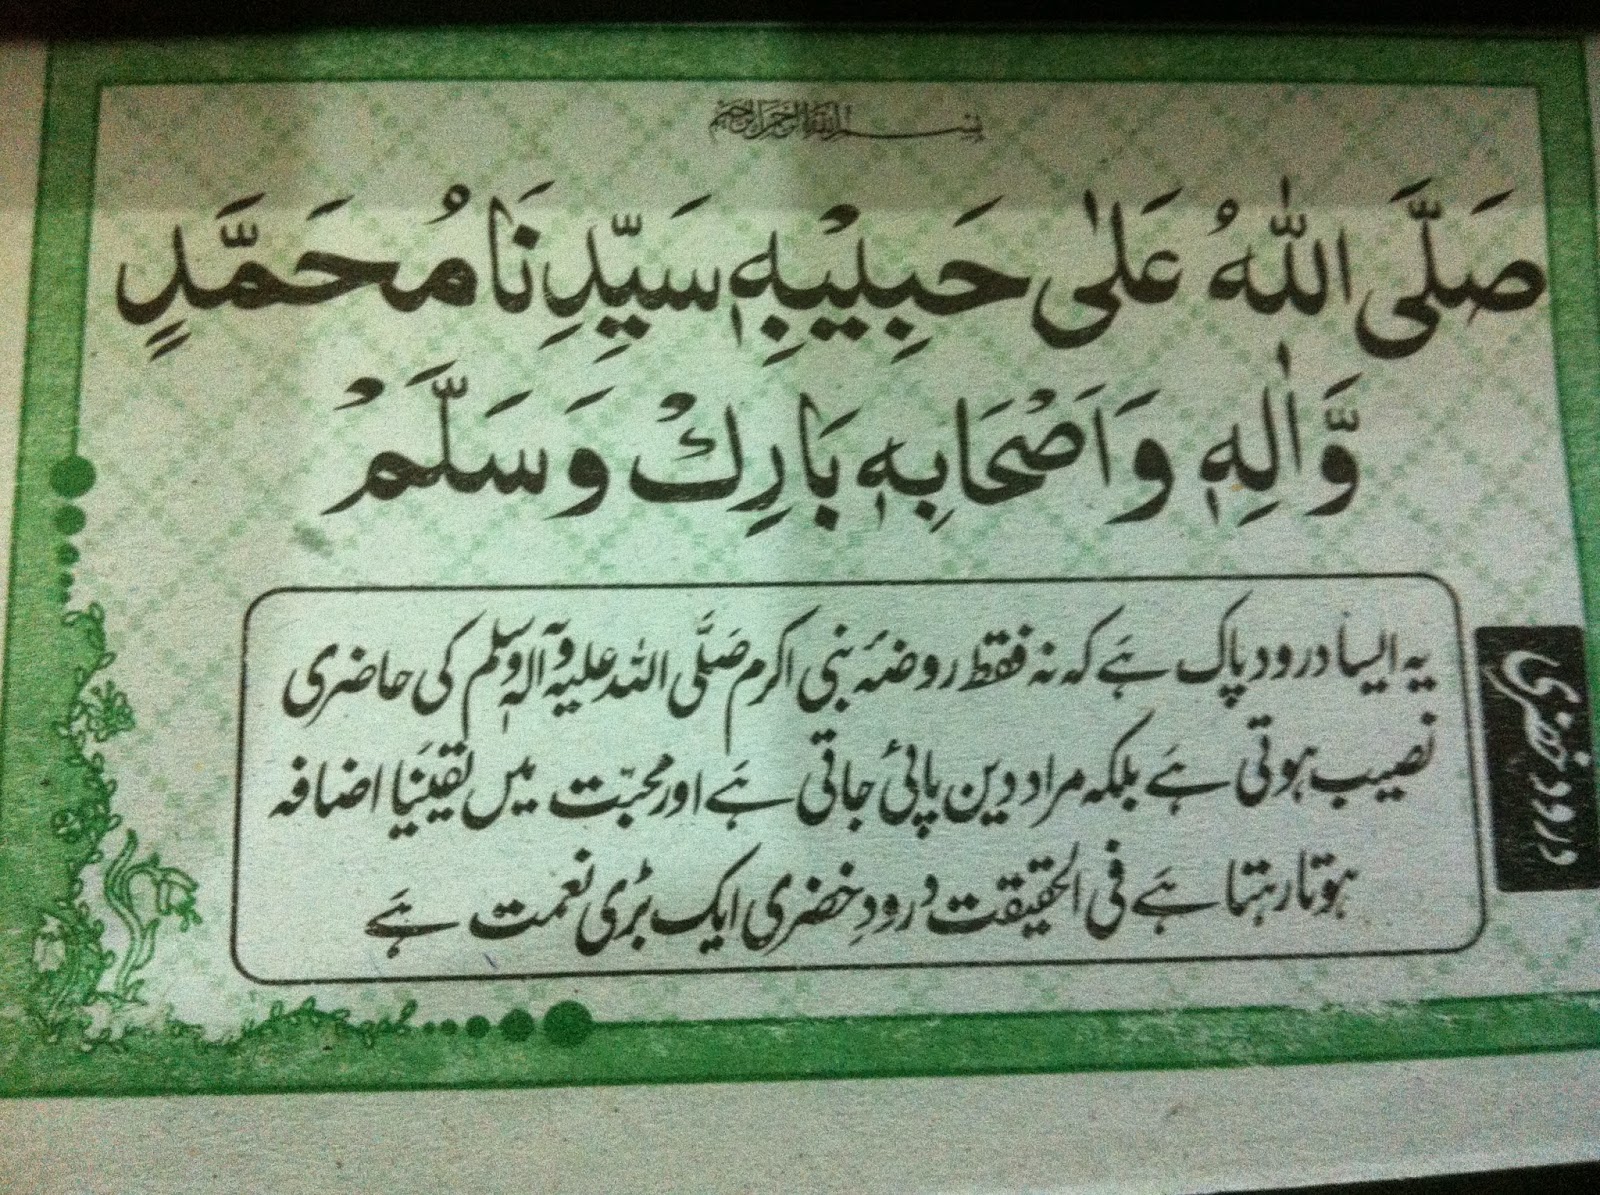 بسم الله الرحمن الرحيم
صَلَّى اللّٰهُ عَلٰى حَبِيْبِهٖ سَيِّدِنَا مُحَمَّدٍ
وَّاٰلِهٖ وَاَصْحَابِهٖ بَارِكْ وَسَلَّمْ
یہ ایسا درود پاک ہے کہ نہ فقط روضۂ نبی اکرم صَلَّی اللہ علیہ وآلہٖ وسلم کی حاضری
نصیب ہوتی ہے بلکہ مراد دین پائی جاتی ہے اور محبّت میں یقینًا اضافہ
ہوتا رہتا ہے فی الحقیقت درودِ خضری ایک بڑی نعمت ہے
درود خضری